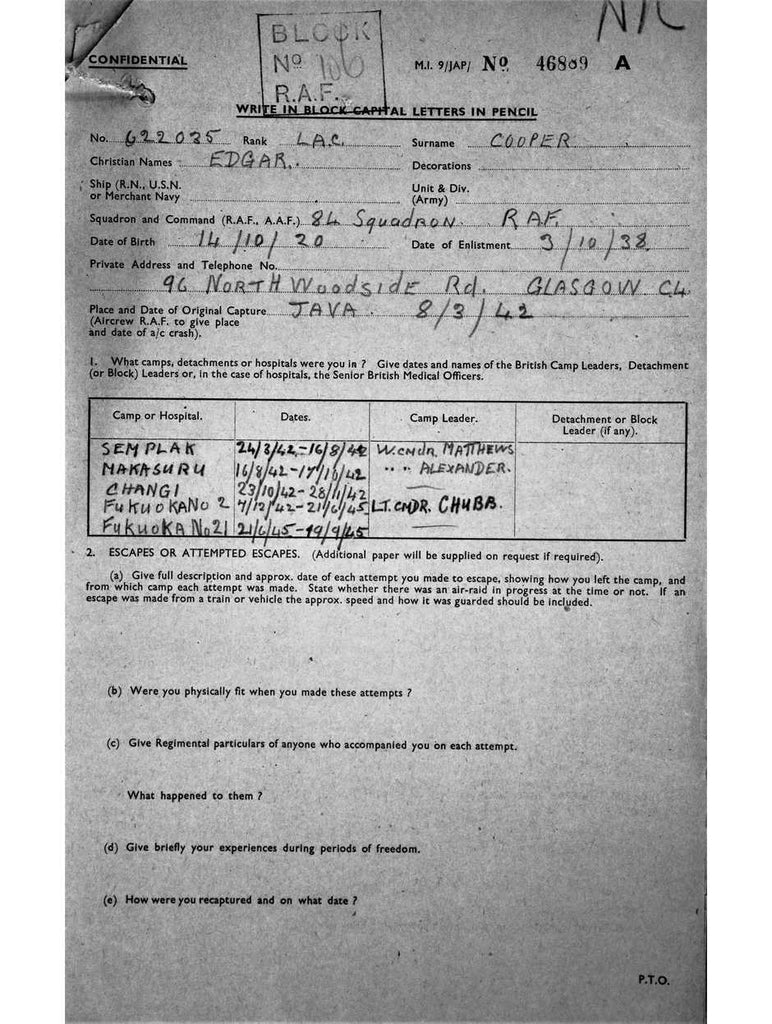 NIL
BLOCK
No 100
R.A.F.
CONFIDENTIAL
M.I. 9/JAP/ No 46809 A
WRITE IN BLOCK CAPITAL LETTERS IN PENCIL
No. 622035 Rank L.A.C. Surname COOPER
Christian Names EDGAR. Decorations
Ship (R.N., U.S.N. or Merchant Navy Unit & Div. (Army)
Squadron and Command (R.A.F., A.A.F.) 84 Squadron R AF.
Date of Birth 14/10/20 Date of Enlistment 3/10/38
Private Address and Telephone No.
96 NORTH WOODSIDE Rd. GLASGOW C4
Place and Date of Original Capture JAVA. 8/3/42
(Aircrew R.A.F. to give place
and date of a/c crash).
1. What camps, detachments or hospitals were you in ? Give dates and names of the British Camp Leaders, Detachment
(or Block) Leaders or, in the case of hospitals, the Senior British Medical Officers.
Camp or Hospital. Dates. Camp Leader. Detachment or Block Leader (if any).
SEMPLAK 24/3/42-16/8/42 W.CMDR. MATTHEWS
MAKASURU 16/8/42-17/10/42 " " ALEXANDER.
CHANGI 23/10/42-28/11/42
FUKUOKA No 2 7/12/42-21/6/45 LT.CMDR. CHUBB.
FUKUOKA No 21 21/6/45-19/9/45
2. ESCAPES OR ATTEMPTED ESCAPES. (Additional paper will be supplied on request if required).
(a) Give full description and approx. date of each attempt you made to escape, showing how you left the camp, and
from which camp each attempt was made. State whether there was an air-raid in progress at the time or not. If an
escape was made from a train or vehicle the approx. speed and how it was guarded should be included.
(b) Were you physically fit when you made these attempts ?
(c) Give Regimental particulars of anyone who accompanied you on each attempt.
What happened to them ?
(d) Give briefly your experiences during periods of freedom.
(e) How were you recaptured and on what date ?
P.T.O.